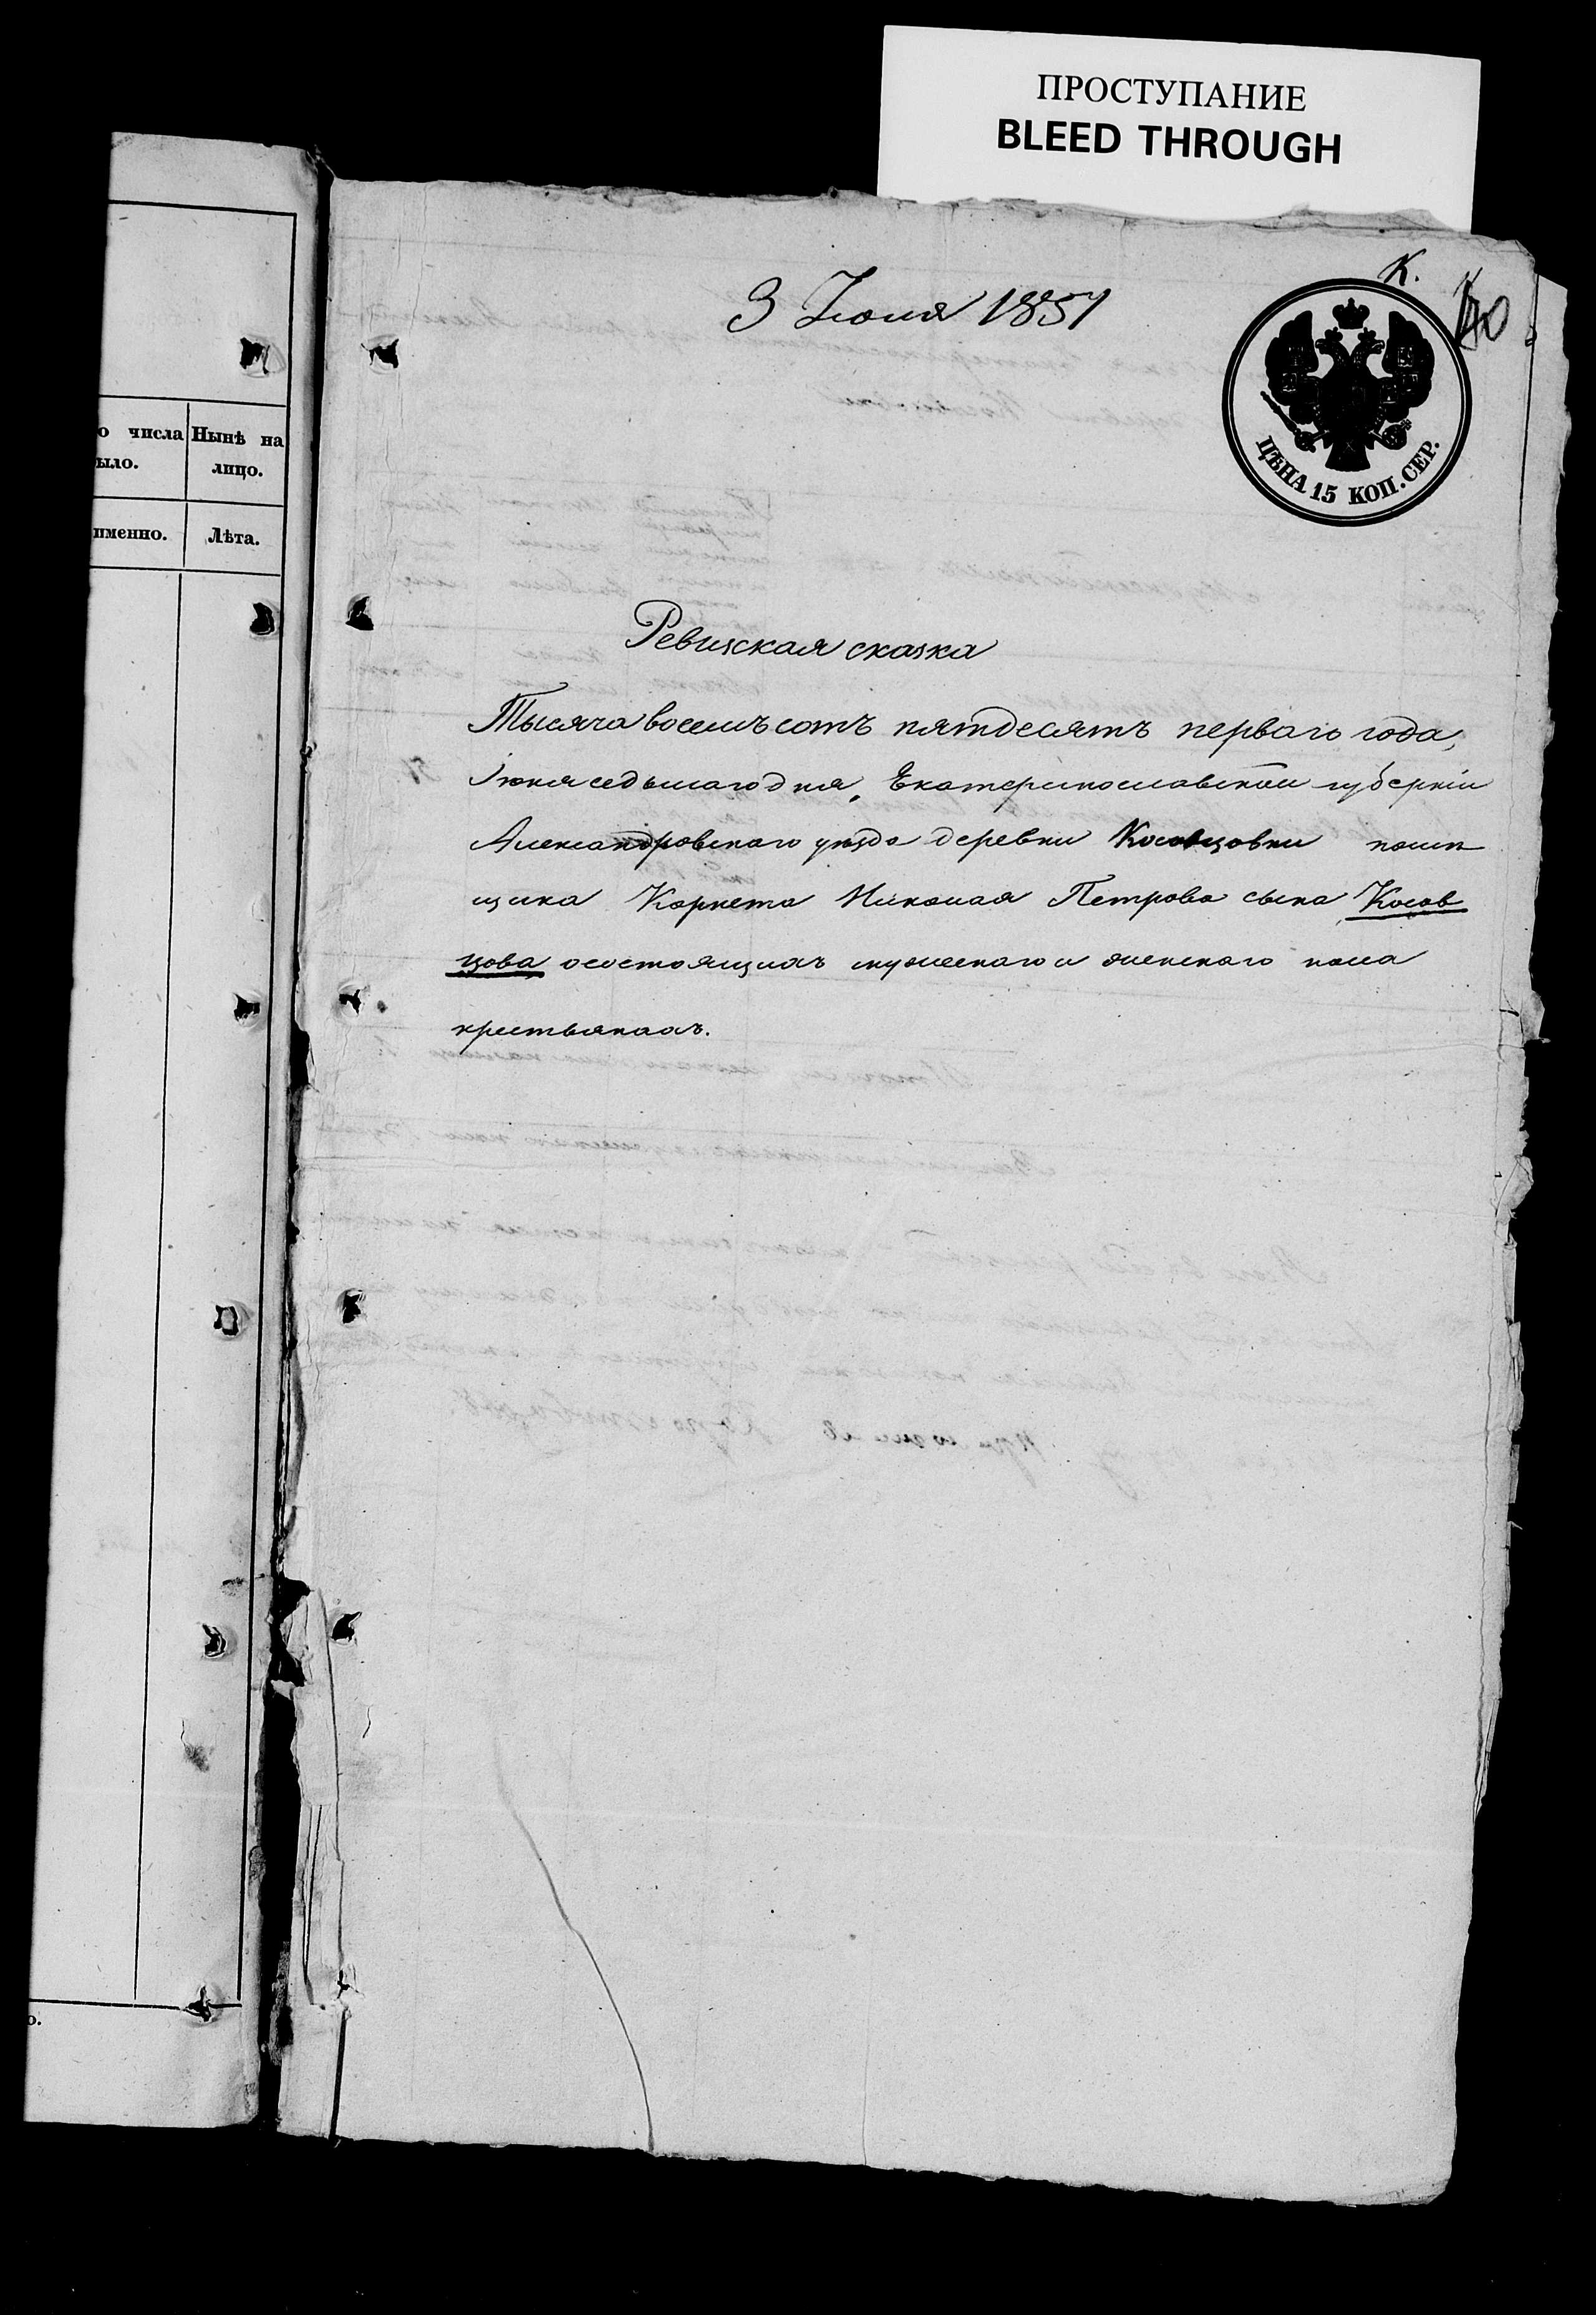 ПРОСТУПАНИЕ
BLEED THROUGH
о числа
ыло.
именно.
Нынѣ на
лицо.
Лѣта.
К.
3 Июня 1851
ЦѢНА 15 КОП. СЕР.
Ревизская сказка
Тысяча восемъсотъ пятдесятъ перваго года,
Июня седьмаго дня, Екатеринославской губерніи
Александровскаго уѣзда деревни Косовцовки помѣ
щика Корнета Николая Петрова сына Косов
цова осостоящихъ мужескаго и женскаго пола
крестьянахъ.
о.